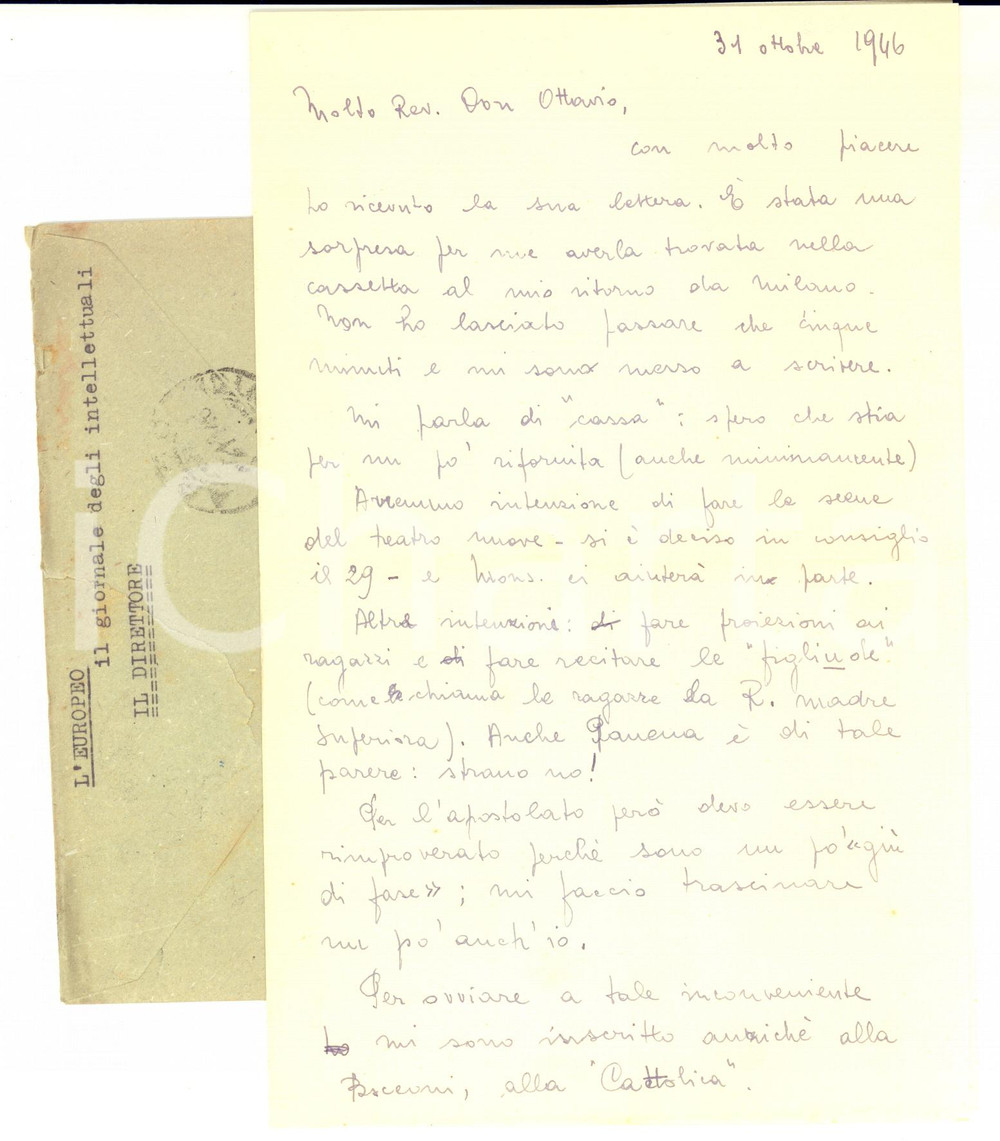 31 ottobre 1946
Molto Rev. Don Ottavio,
con molto piacere
ho ricevuto la sua lettera. È stata una
sorpresa per me averla trovata nella
cassetta al mio ritorno da Milano.
Non ho lasciato passare che cinque
minuti e mi sono messo a scrivere.
Mi parla di "cassa": spero che stia
per un po' rifornita (anche minimamente)
Avremmo intenzione di fare le scene
del teatro nuove - si è deciso in consiglio
il 29 - e Mons. ci aiuterà in parte.
Altre intenzioni: di fare proiezioni ai
ragazzi e di fare recitare le "figliuole"
(come chiama le ragazze la R. madre
superiora). Anche è di tale
parere: strano no!
Per l'apostolato però devo essere
rimproverato perchè sono un po' «giù
di fase»; mi faccio trascinare
un po' anch'io.
Per ovviare a tale inconveniente
ho mi sono inscritto anzichè alla
Bocconi, alla "Cattolica".
L'EUROPEO
il giornale degli intellettuali
IL DIRETTORE
============
iCharta